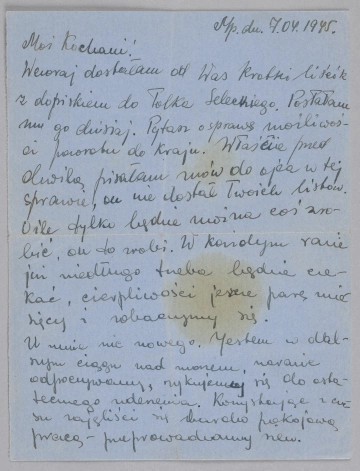 Mp. dn. 7.04.1945.
Moi Kochani!
Wczoraj dostałam od Was krótki liścik
z dopiskiem do Tolka Seleckiego. Posłałam
mu go dzisiaj. Pytasz o sprawę możliwoś-
ci powrotu do kraju. Właśnie przed
chwilą pisałam znów do ojca w tej
sprawie, on nie dostał Twoich listów.
O ile tylko będzie można coś zro-
bić, on to zrobi. W każdym razie
już niedługo trzeba będzie cze-
kać, cierpliwości jeszcze parę mie-
sięcy i zobaczymy się.
U mnie nic nowego. Jestem w dal-
szym ciągu nad morzem, narazie
odpoczywamy, szykujemy się do osta-
tecznego uderzenia. Korzystając z cza-
su zajęliści się bardzo pokojową
pracą - przeprowadzamy siew.